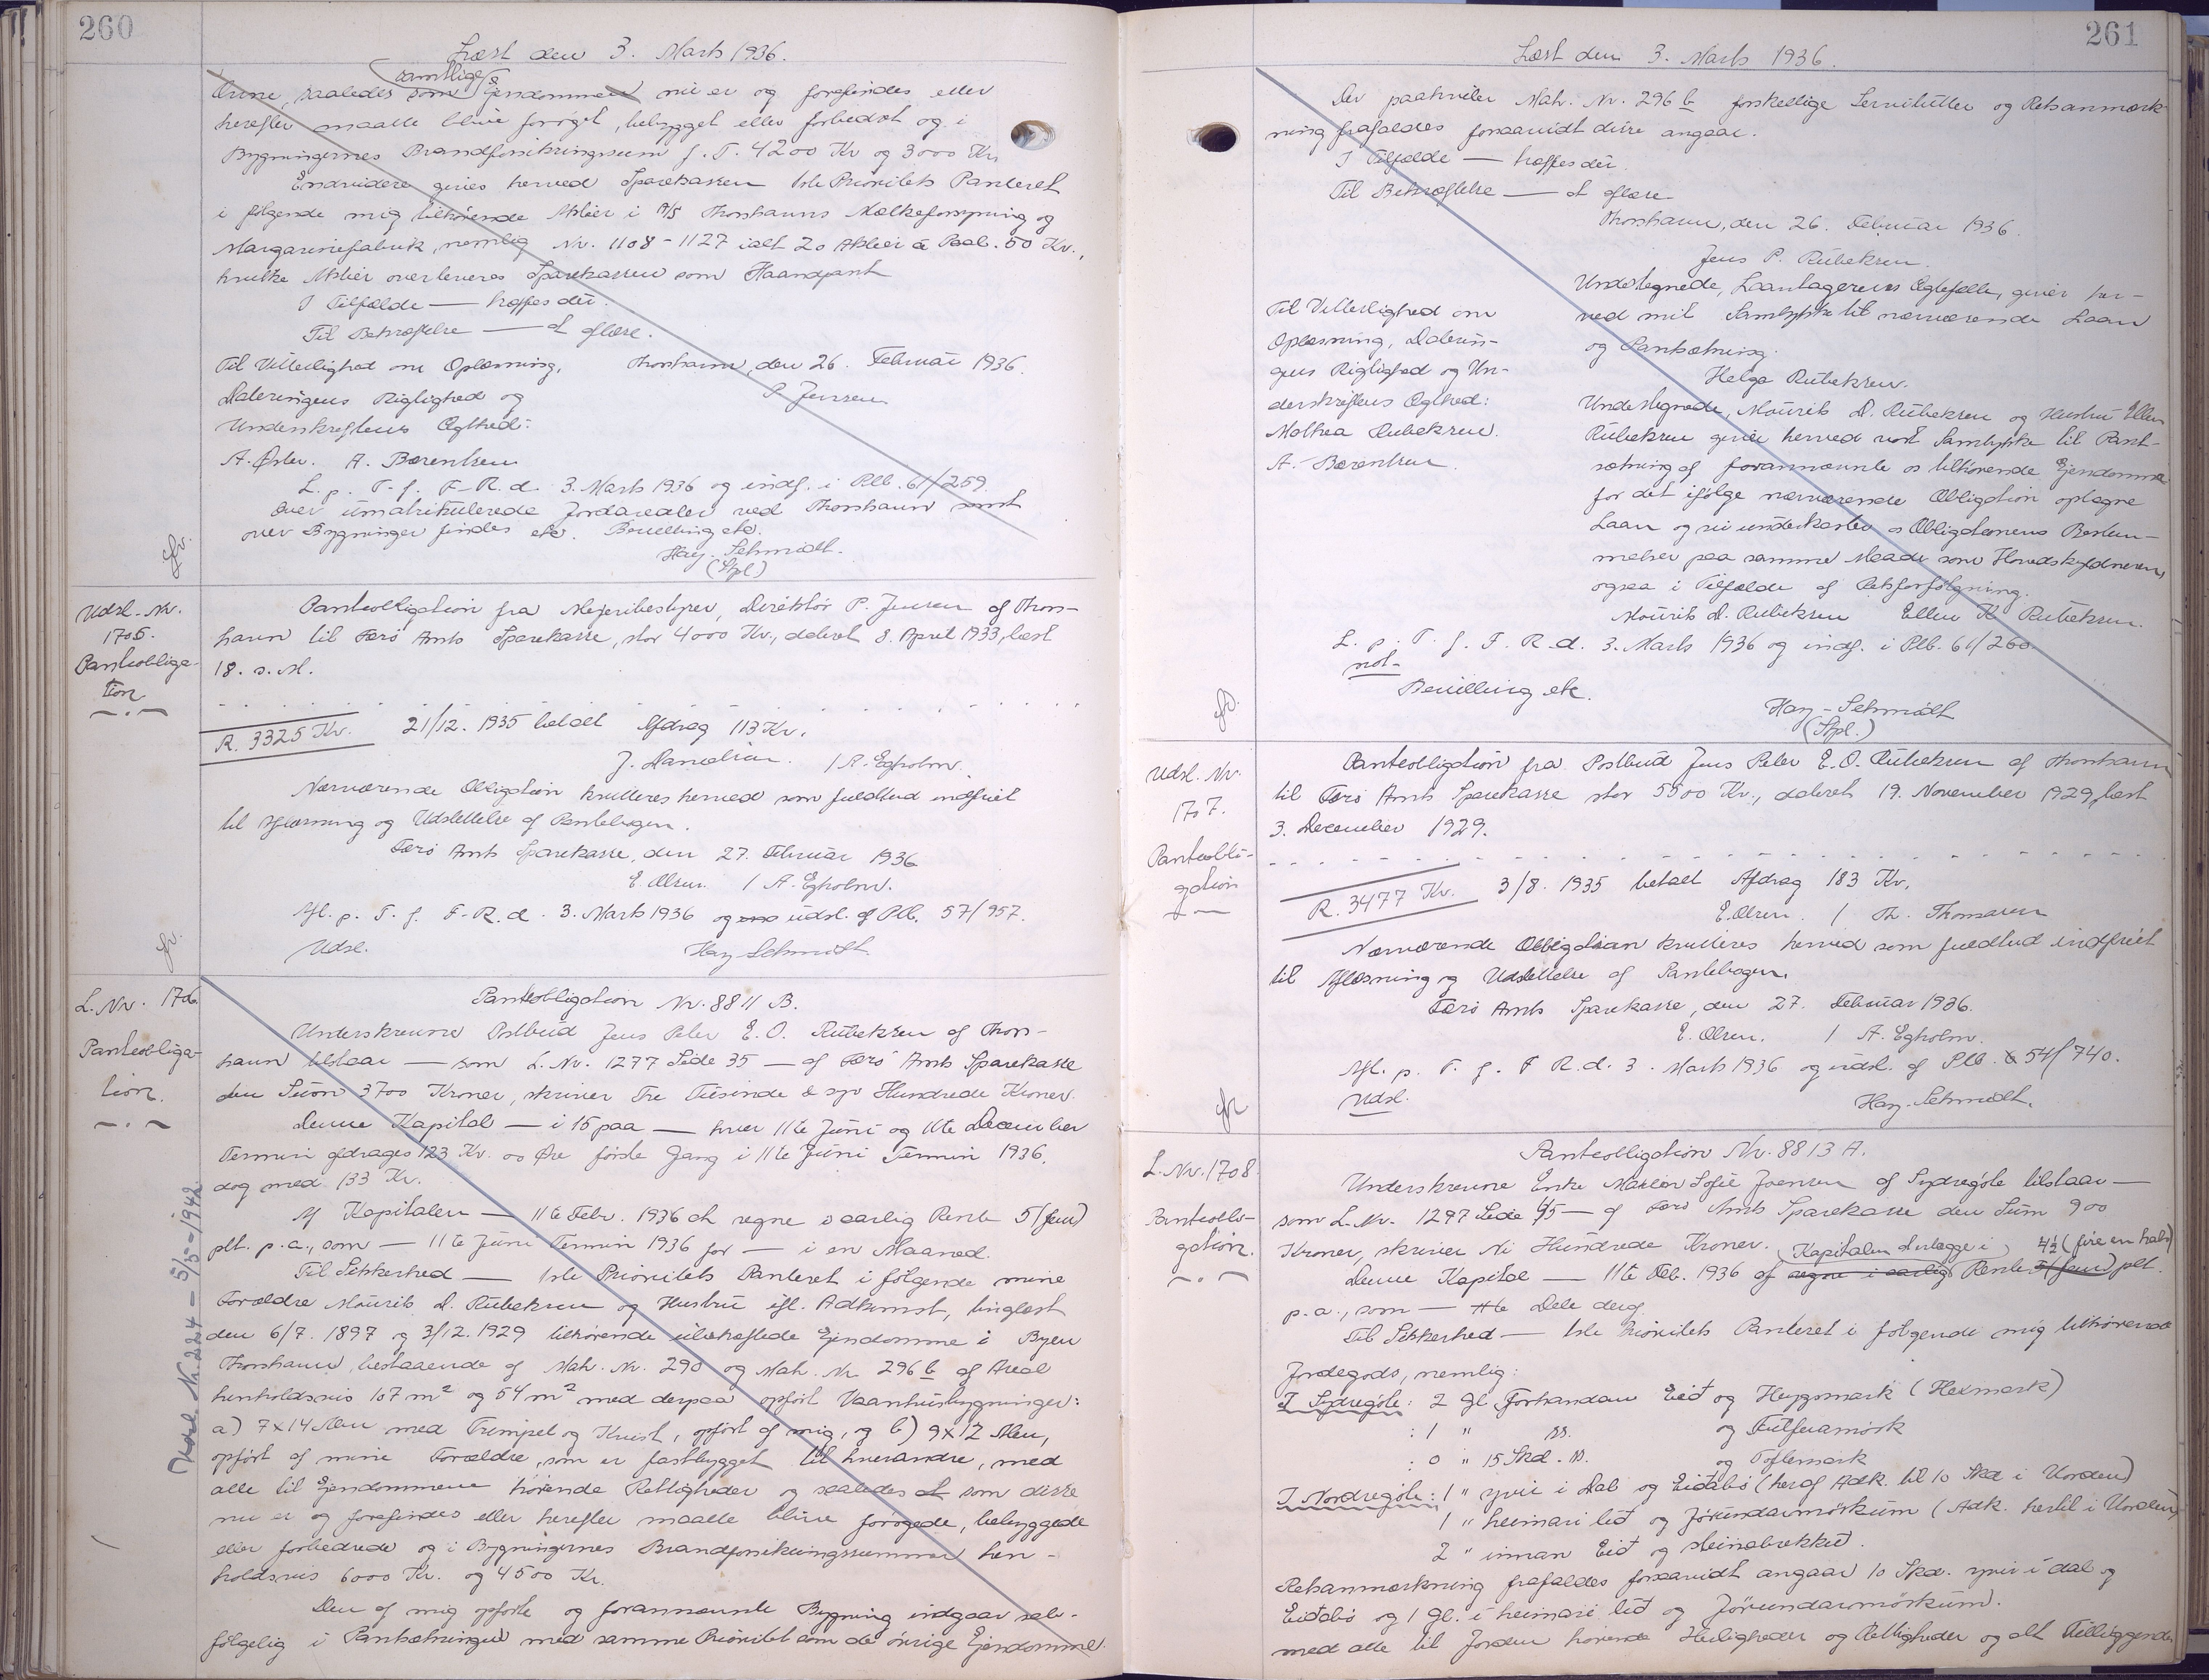 260
Læst den 3. Marts 1936.
samtlige
Evne, saaledes som Ejendommen nu er og forefindes eller
herefter maatte blive forøget, bebygget eller forbedret og i
Bygningernes Brandforsikringssum f. T. 4200 Kr og 3000 Kr.
Endvidere gives herved Sparekassen 1ste Prioritets Panteret
i følgende mig tilhørende Aktier i A/S Thorshavns Mælkeforsyning og
Margarinefabrik, nemlig Nr. 1108-1127 ialt 20 Aktier a Paal. 50 Kr.,
hvilke Aktier overleveres Sparekassen som Haandpant
I Tilfælde — træffes der.
Til Bekræftelse — at aflæse.
Til Vitterlighed om Oplæsning, Thorshavn, den 26. Februar 1936.
Dateringens Rigtighed og P Jensen
Underskriftens Ægthed:
A. Øster. A. Bærentsen
L. p. T. f. F. R. d. 3. Marts 1936 og indf. i Ptb. 61/259.
Over umatrikulerede Jordarealer ved Thorshavn samt
over Bygninger findes etc. Bevilling etc.
Hay-Schmidt.
(Stpl)
Udsl. Nr.
1705.
Panteobliga-
tion
Panteobligation fra Mejeribestyrer, Direktør P. Jensen af Thors-
havn til Færø Amts Sparekasse, stor 4000 Kr., dateret 8. April 1933, læst
18. s. M.
R. 3325 Kr. 21/12. 1935 betalt Afdrag 113 Kr.
J. Danielsen. / A. Egholm.
Nærværende Obligation kvitteres herved som fuldtud indfriet
til Aflæsning og Udslettelse af Pantebogen.
Færø Amts Sparekasse, den 27. Februar 1936
E. Olsen. / A. Egholm.
Afl. p. T. f. F. R. d. 3. Marts 1936 og udsl. af Ptb. 57/957.
Udsl. Hay-Schmidt
L. Nr. 1706.
Panteobliga-
tion.
Udsl. Nr. 224 - 5/5 - 1942
Panteobligation Nr. 8811 B.
Underskrevne Postbud Jens Peter E. O. Rubeksen af Thors-
havn tilstaar — som L. Nr. 1277 Side 35 — af Færø Amts Sparekasse
den Sum 3700 Kroner, skriver Tre Tusinde & syv Hundrede Kroner.
Denne Kapital — i 15 paa — hver 11te Juni og 11te December
Termin afdrages 123 Kr. 00 Øre første Gang i 11te Juni Termin 1936,
dog med 133 Kr.
Af Kapitalen — 11te Febr. 1936 at regne i aarlig Rente 5 (fem)
pCt. p. a., som — 11te Juni Termin 1936 for — i en Maaned.
Til Sikkerhed — 1ste Prioritets Panteret i følgende mine
Forældre Mourits D. Rubeksen og Hustru ifl. Adkomst, tinglæst
den 6/7. 1897 og 3/12. 1929 tilhørende ubehæftede Ejendomme i Byen
Thorshavn, bestaaende af Matr. Nr. 290 og Matr. Nr. 296 b af Areal
henholdsvis 107 m² og 54 m² med derpaa opført Vaaningsbygninger:
a) 7 x 14 Alen med Trempel og Kvist, opført af mig, og b) 9 x 12 Alen,
opført af mine Forældre, som er fastbygget til hverandre, med
alle til Ejendommene hørende Rettigheder og saaledes at som disse
nu er og forefindes eller herefter maatte blive forøgede, bebyggede
eller forbedrede og i Bygningernes Brandforsikringssummer hen-
holdsvis 6000 Kr. og 4500 Kr.
Den af mig opførte og forannævnte Bygning indgaar selv-
følgelig i Pantsætningen med samme Prioritet som de øvrige Ejendomme.
261
Læst den 3. Marts 1936.
Der paahviler Matr. Nr. 296 b forskellige Servitutter og Retsanmærk-
ning frafaldes forsaavidt disse angaar.
I Tilfælde — træffes der.
Til Bekræftelse — at aflæse
Thorshavn, den 26. Februar 1936.
Jens P. Rubeksen.
Til Vitterlighed om
Oplæsning, Daterin-
gens Rigtighed og Un-
derskriftens Ægthed:
Malthea Rubeksen.
A. Bærentsen.
Undertegnede, Laantagerens Ægtefælle, giver her-
ved mit Samtykke til nærværende Laan
og Pantsætning.
Helga Rubeksen.
Undertegnede, Mourits D. Rubeksen og Hustru Ellen
Rubeksen giver herved vort Samtykke til Pant-
sætning af forannævnte os tilhørende Ejendomme
for det ifølge nærværende Obligation optagne
Laan og vi underkaster os Obligationens Bestem-
melser paa samme Maade som Hovedskyldneren,
ogsaa i Tilfælde af Retsforfølgning.
Mourits D. Rubeksen Ellen K. Rubeksen.
L. p. T. f. F. R. d. 3. Marts 1936 og indf. i Ptb. 61/260.
not-
Bevilling etc.
Hay-Schmidt
(Stpl.)
Udsl. Nr.
1707.
Panteobli-
gation
Panteobligation fra Postbud Jens Peter E. O. Rubeksen af Thorshavn
til Færø Amts Sparekasse stor 5500 Kr., dateret 19. November 1929, læst
3. December 1929.
R. 3477 Kr. 3/8. 1935 betalt Afdrag 183 Kr.
E. Olsen. / Th. Thomasen
Nærværende Obligation kvitteres herved som fuldtud indfriet
til Aflæsning og Udslettelse af Pantebogen.
Færø Amts Sparekasse, den 27. Februar 1936.
E. Olsen. / A. Egholm.
Afl. p. T. f. F. R. d. 3. Marts 1936 og udsl. af Ptb. 54/740.
Udsl. Hay-Schmidt.
L. Nr. 1708.
Panteobli-
gation.
Panteobligation Nr. 8813 A.
Underskrevne Enke Maren Sofie Joensen af Sydregøte tilstaar —
som L. Nr. 1297 Side 45 — af Færø Amts Sparekasse den Sum 900
Kroner, skriver Ni Hundrede Kroner. Kapitalen at erlægge i 4½ (fire en halv)
Denne Kapital — 11te Feb. 1936 af regne i aarlig Rente 5 (fem) pCt.
p. a., som — 11te Dele deraf.
Til Sikkerhed — 1ste Prioritets Panteret i følgende mig tilhørende
Jordegods, nemlig:
I Sydregøte: 2 Gl. Forhandan Eið og Heygsmark (Heimark)
: 1 " og
: 0 " 15 Skd. og Toftemark
I Nordregøte: 1 " yvir i Dal og Eiðabø (heraf Adk. til 10 Skd i Uorden)
1 " heimari leð og Jørundarmørkum (Adk. hertil i Uorden)
2 " innan Eið og steinabrekku.
Retsanmærkning frafaldes forsaavidt angaar 10 Skd. yvir í dal og
Eiðabø og 1 gl. í heimari leð og Jørundarmørkum.
med alle til Jorden hørende Herligheder og Rettigheder og alt Tilliggende